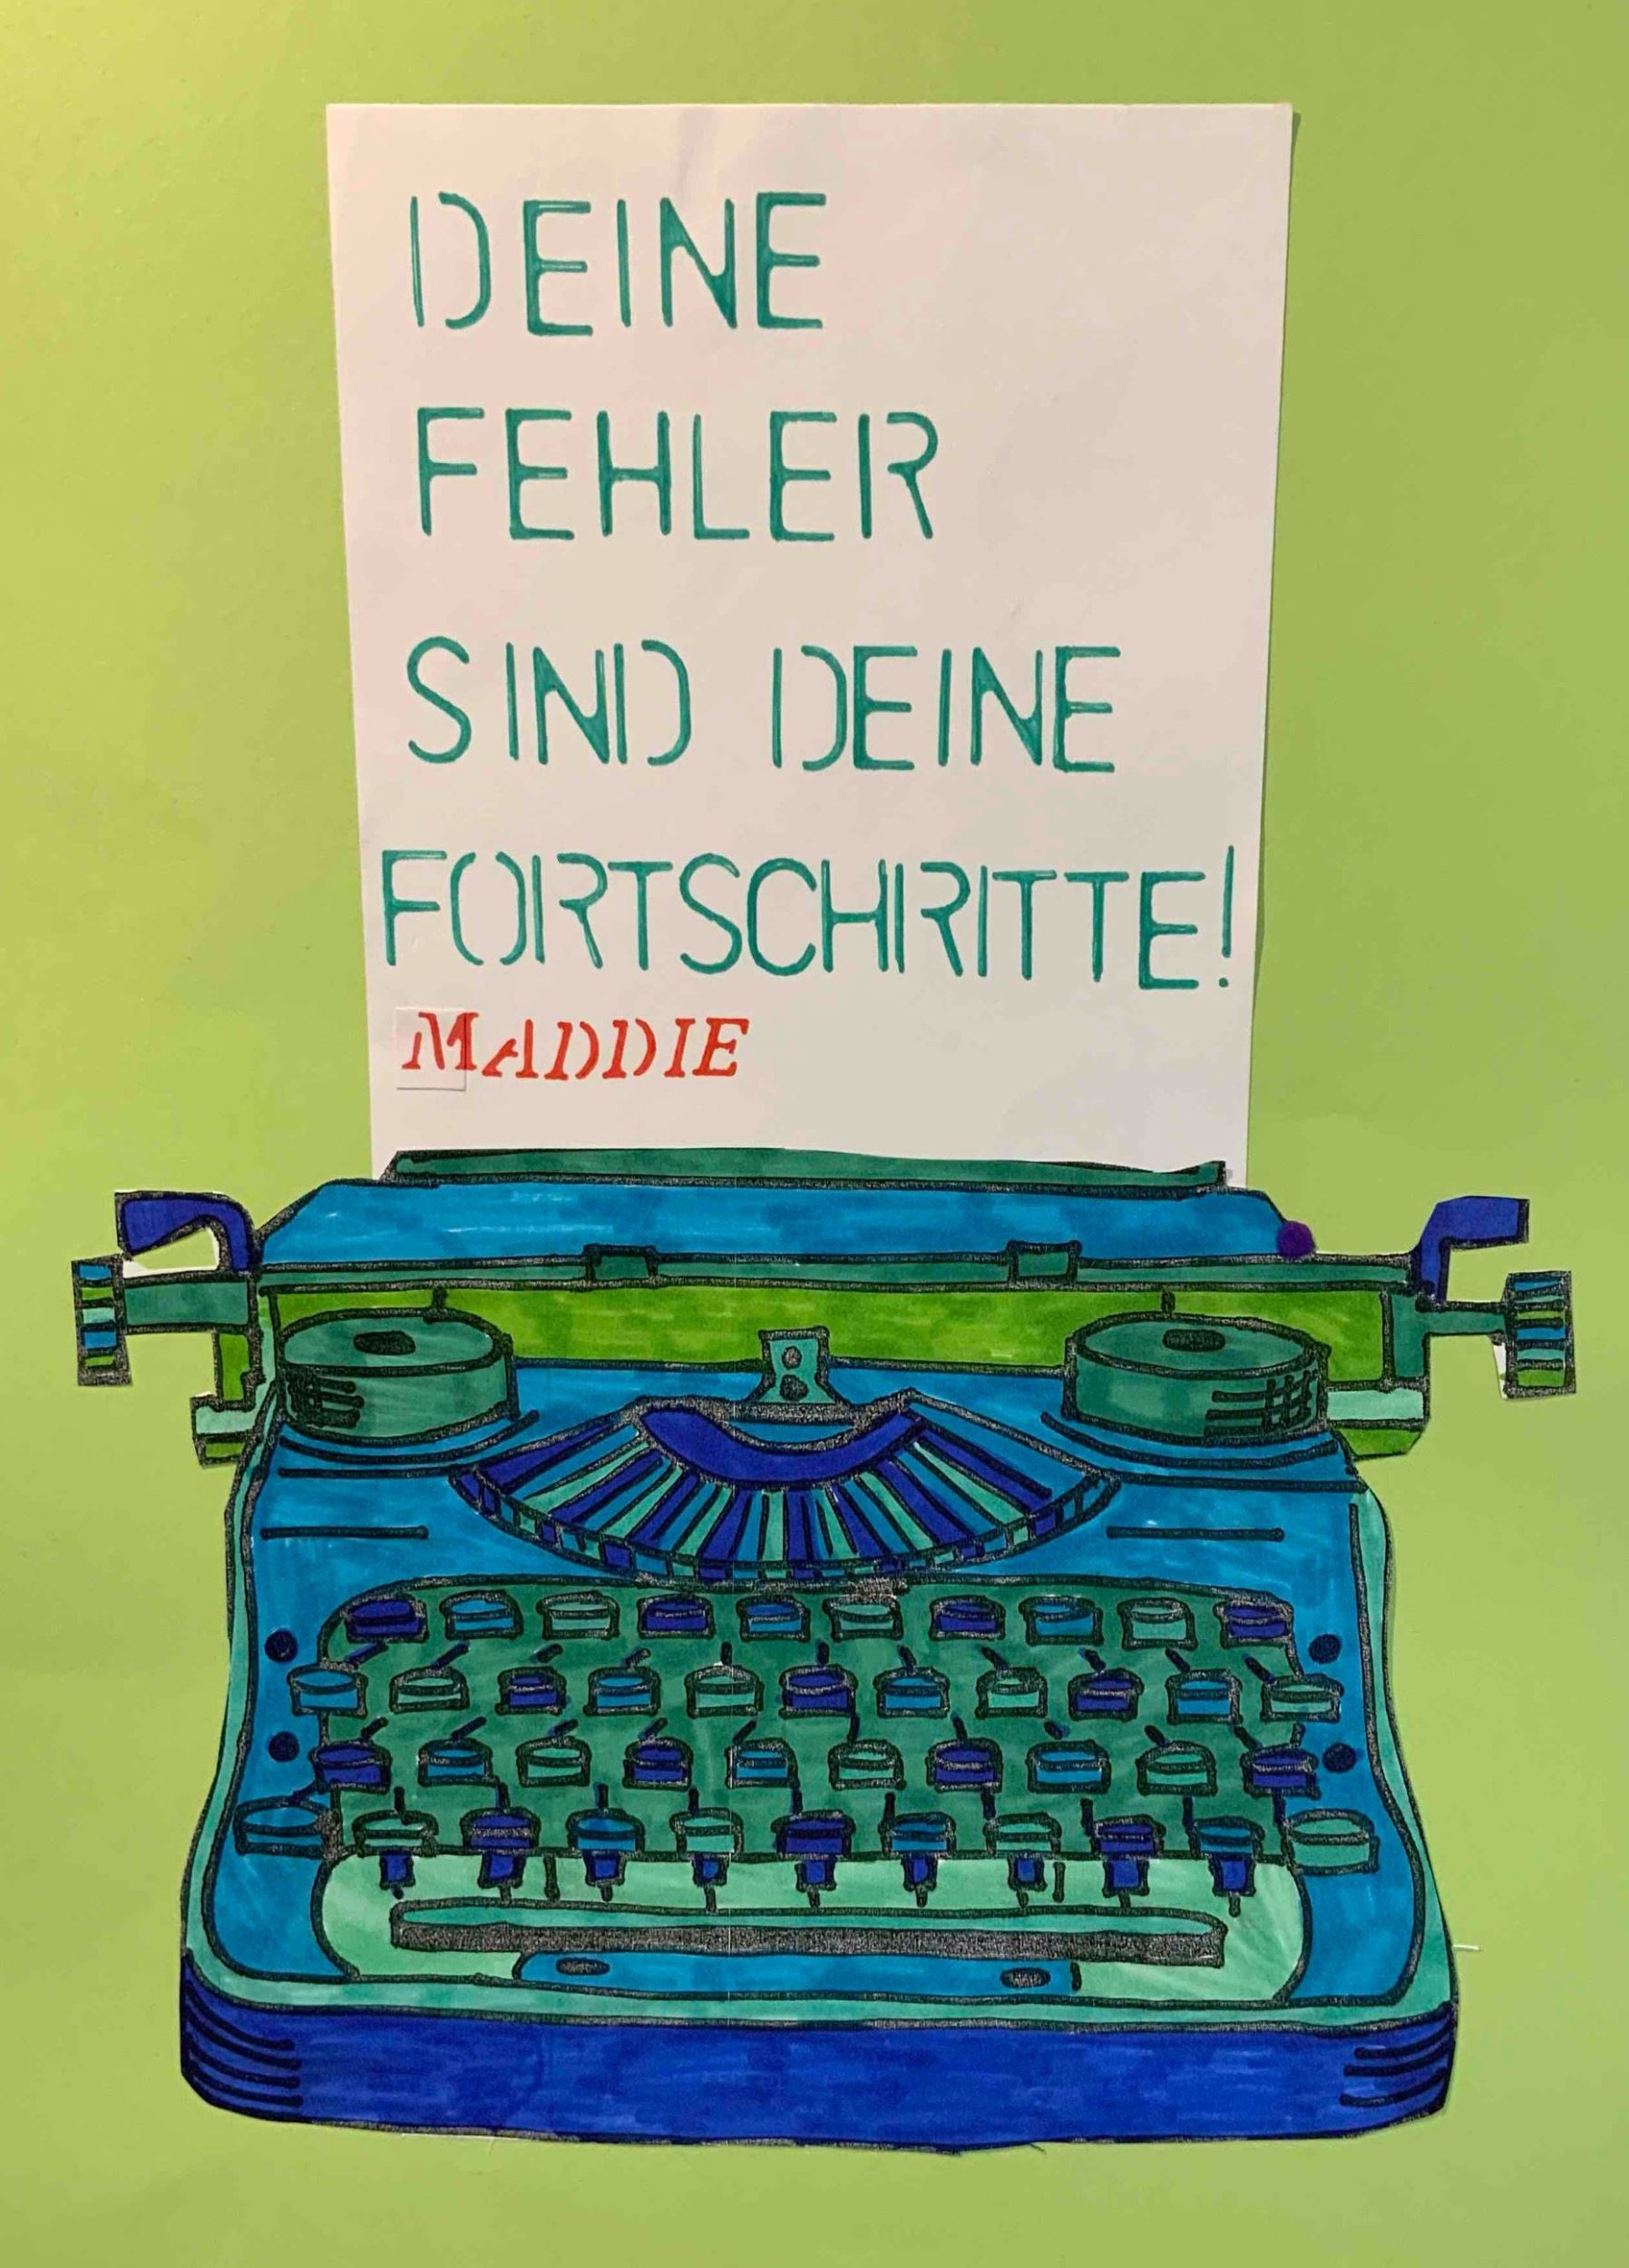 DEINE
FEHLER
SIND DEINE
FORTSCHRITTE!
MADDIE